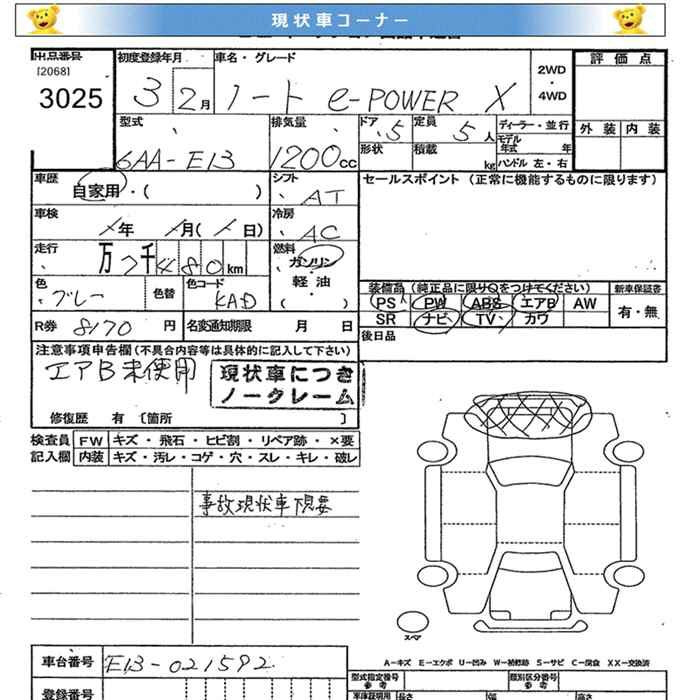 現状車コーナー
出品番号
[2068]
3025
初度登録年月
3 2月
車名・グレード
ノート e-POWER X
2WD
・
4WD
評価点
外装 内装
型式
6AA-E13
排気量
1200cc
ドア
5
定員
5人
形状
積載
kg
ディーラー・並行
モデル
年式 年
ハンドル 左・右
車歴
自家用・( )
シフト
AT
セールスポイント (正常に機能するものに限ります)
車検
年 月( 日)
冷房
AC
走行
万 7千480km
燃料
ガソリン
軽油
・( )
色
グレー
色替
色コード
KAD
装備品 (純正品に限りOをつけてください)
新車保証書
PS PW ABS エアB AW
SR ナビ TV カワ
有・無
R券 8170円
名変通知期限 月 日
後日品
注意事項申告欄(不具合内容等は具体的に記入して下さい)
エアB未使用
現状車につき
ノークレーム
修復歴 有 〔箇所 〕
検査員
記入欄
FW キズ・飛石・ヒビ割・リペア跡・×要
内装 キズ・汚レ・コゲ・穴・スレ・キレ・破レ
事故現状車下見要
スペア
車台番号 E13-021592
登録番号
A-キズ E-エクボ U-凹み W-補修跡 S-サビ C-腐食 XX-交換済
型式指定番号
参考
類別区分番号
参考
車庫証明用
長さ
幅
高さ